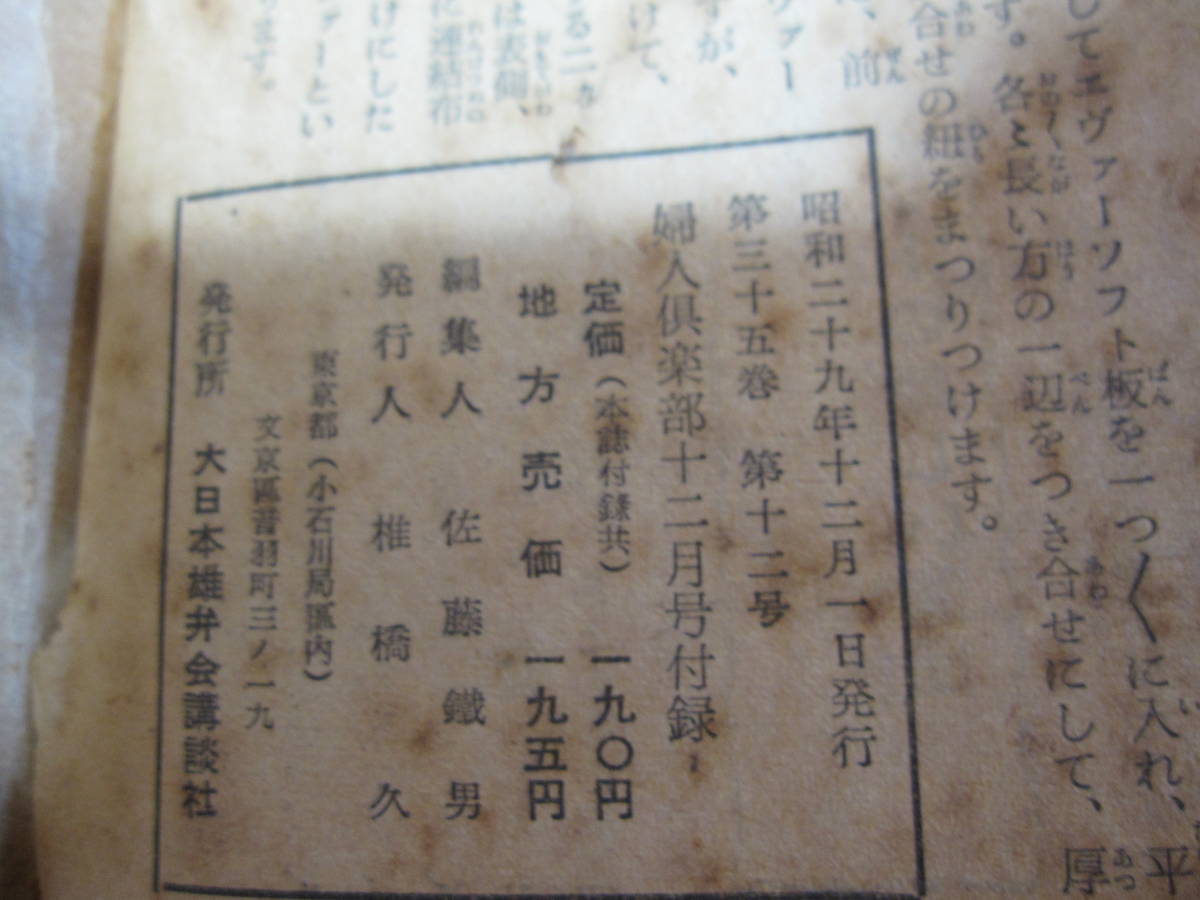 してエヴァーソフト板を一つ〱に入れ、平
す。各〻長い方の一辺をつき合せにして、厚
合せの紐をまつりつけます。
前
ヴァー
すが、
けて、
る二
は表側、
に連結布
けにした
ァーとい
ります。
昭和二十九年十二月一日発行
第三十五巻 第十二号
婦人倶楽部十二月号付録
定価(本誌付録共) 一九〇円
地方売価 一九五円
編集人 佐藤鐵男
発行人 椎橋久
東京都(小石川局區内)
文京區音羽町三ノ一九
発行所 大日本雄弁会講談社